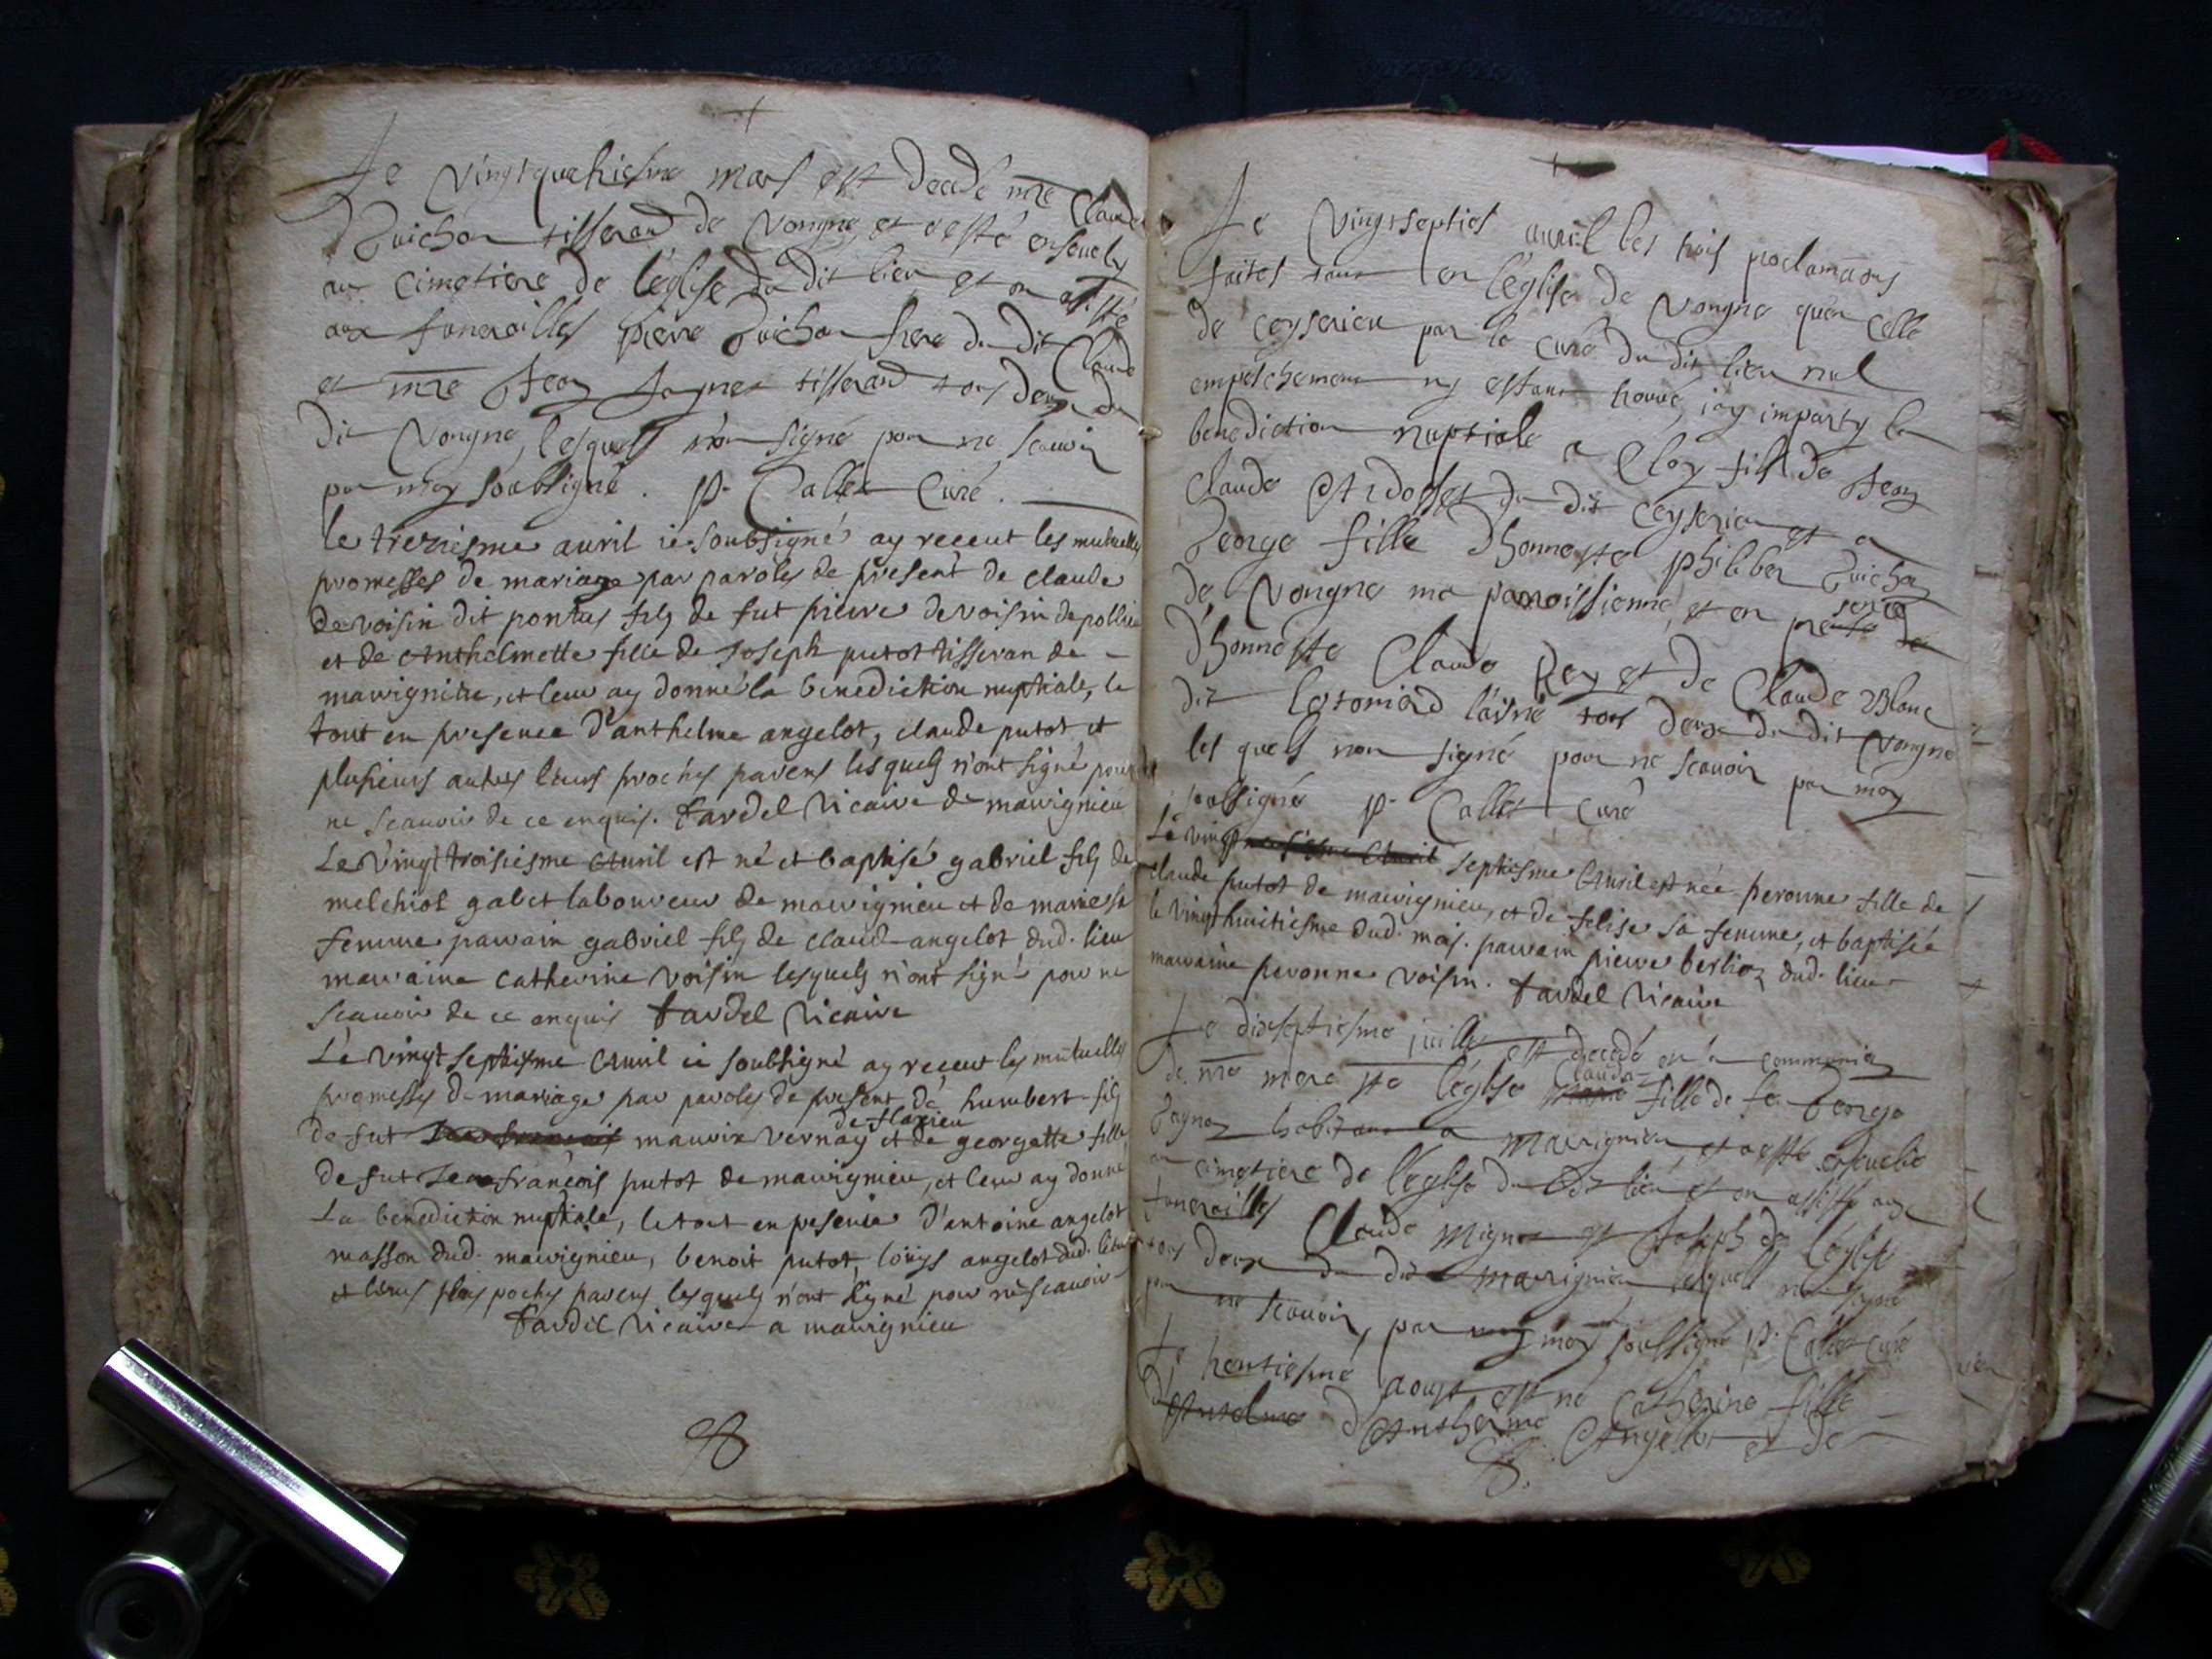 Le vingtquatriesme mars est decedé mre Claude
Guichon tisserand de Vongne, et a esté enseuely
au cimetiere de l'église du dit lieu et on assisté
aux funerailles pierre Guichon frere du dit Claude
et mre Jean tisserand tous deux du
dit Vongne, lesquels n'on signé pour ne scauoir
par moy soubsigné. p. Callet Curé.
le treziesme auril ie soubsigné ay receut les mutuelles
promesses de mariage par paroles de present de claude
de voisin dit pontus filz de fut pierre de voisin de pollieu
et de Anthelmette fille de Joseph putot tisseran de
mauvignieu, et leur ay donné la benediction nuptiale, le
tout en presence d'anthelme angelot, claude putot et
plusieurs autres leurs proches parens lesquelz n'ont signé pour
ne scauoir de ce enquis. tardel vicaire de mauvignieu
Le vingt troisiesme Auril est né et baptisé gabriel filz de
melchiot galet laboureur de mauvignieu et de marie sa
femme parrain gabriel filz de claud angelot dud. lieu
marraine catherine voisin lesquelz n'ont signé pour ne
scauoir de ce enquis tardel vicaire
Le vingt septiesme Auril ie soubsigné ay receut les mutuelles
promesses de mariage par paroles de present de humbert filz
de flaxieu
de fut maurix vernay et de georgette fille
de fut Jean françois putot de mauvignieu, et leur ay donné
La benediction nuptiale, le tout en presence d'antoine angelot
masson dud. mauvignieu, benoit putot, loüys angelot dud. lieu
et leurs plus poches parens lesquelz n'ont signé pour ne scauoir
tardel vicaire a mauvignieu
Le vingtsepties auril les trois proclamaons
faites tant en l'église de Vongne qu'en celle
de ceyserieu par le curé du dit lieu nul
empeschement ny estant trouué, iay imparty la
benediction nuptiale a Cloy fils de Jean
Claude du dit ceyserieu et a
George fille d'honneste philiber Guichon
de Vongne ma parroissienne, et en presence de
d'honneste Claude Rey et de Claude Blanc
dit l'aisné tous deux du dit Vongne
les quels non signé pour ne scauoir par moy
soubsigné p. Callet Curé
Le vingt septiesme Auril est née peronne fille de
claude putot de mauvignieu, et de felise sa femme, et baptisée
le vingthuitiesme dud. mois. parrain pierre berlioz dud. lieu
marraine peronne voisin. tardel vicaire
Le dixseptiesme juillet est decedé en la communion
de nre mere ste l'église Claude fille de fu George
habitant a Mauvignieu, et a esté enseuelie
au cimetiere de l'église du dit lieu et on assisté aux
funerailles Claude Mignot et Joseph de l'église
tous deux du dit Mauvignieu lesquels n'on signé
pour ne scauoir, par moy soubsigné p. Callet Curé
Le trentiesme aoust est né catherine fille
d'Anthelme Angellot et de